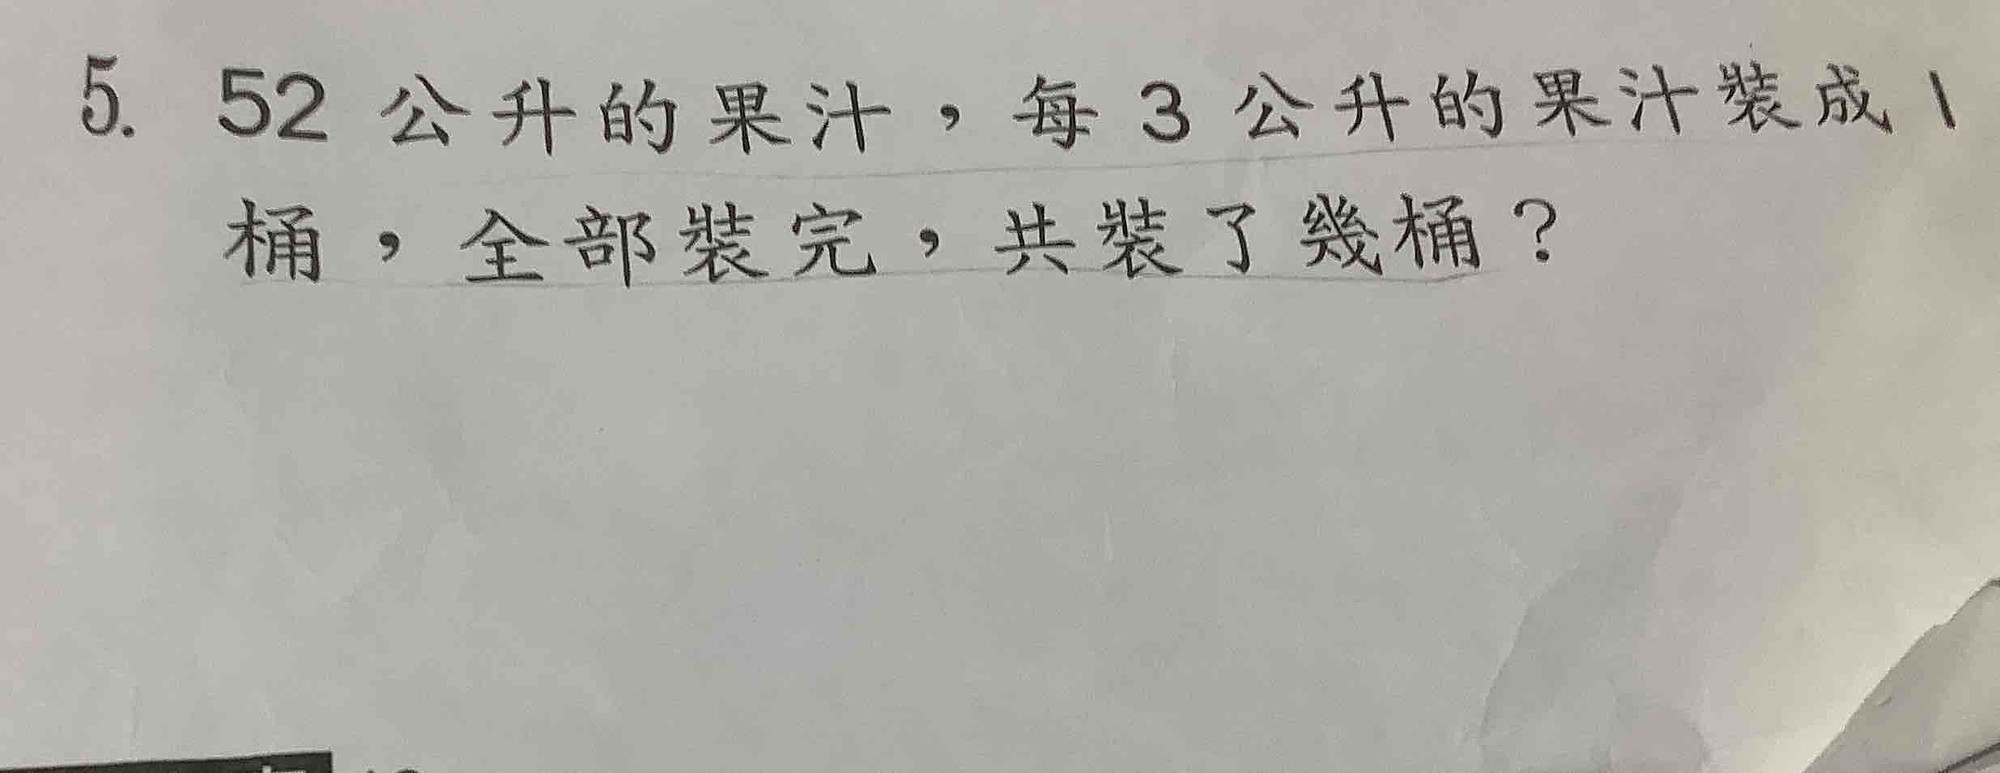 5. 52 公升的果汁，每 3 公升的果汁裝成 1
桶，全部裝完，共裝了幾桶？